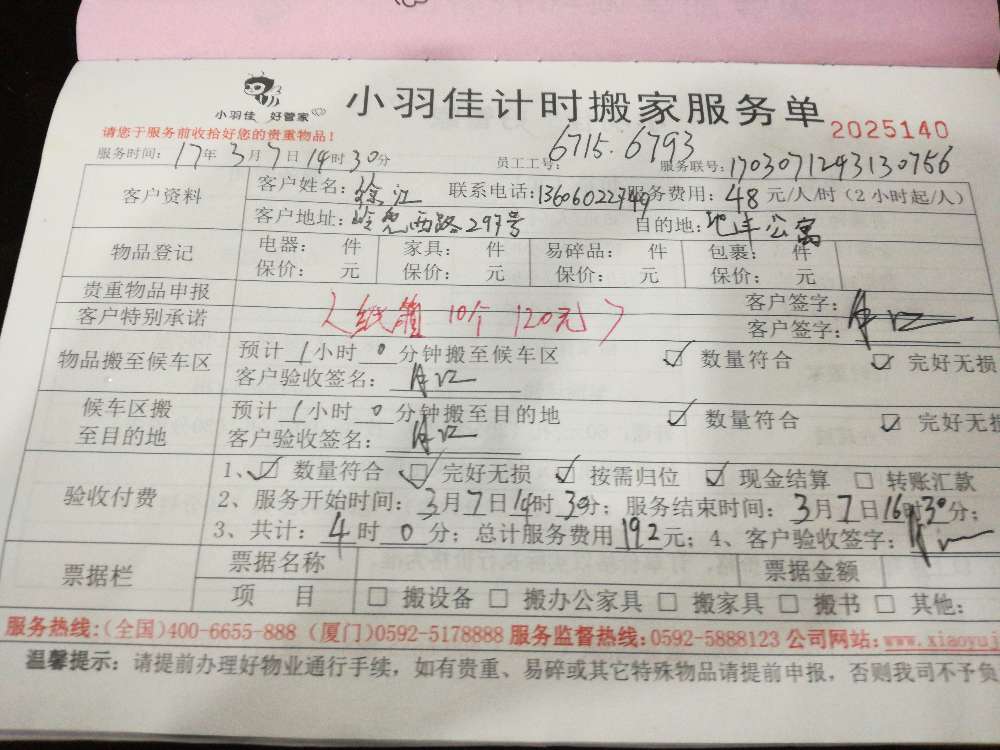 小羽佳 好管家
小羽佳计时搬家服务单
2025140
请您于服务前收拾好您的贵重物品！
服务时间：17年3月7日14时30分 员工工号：6715.6793 服务联号：1703071243130756
客户资料
客户姓名：徐江 联系电话：13606022749 服务费用：48元/人/时（2小时起/人）
客户地址： 西路297号 目的地： 公寓
物品登记
电器： 件 家具： 件 易碎品： 件 包裹： 件
保价： 元 保价： 元 保价： 元 保价： 元
贵重物品申报 客户签字：
客户特别承诺 （纸箱 10个 120元） 客户签字：
物品搬至候车区
预计1小时0分钟搬至候车区 ☑数量符合 ☑完好无损
客户验收签名：
候车区搬至目的地
预计1小时0分钟搬至目的地 ☑数量符合 ☑完好无损
客户验收签名：
验收付费
1、☑数量符合 ☑完好无损 ☑按需归位 ☑现金结算 □转账汇款
2、服务开始时间：3月7日14时30分；服务结束时间：3月7日16时30分；
3、共计：4时0分；总计服务费用192元；4、客户验收签字：
票据栏
票据名称 票据金额
项 目 □搬设备 □搬办公家具 □搬家具 □搬书 □其他：
服务热线：(全国)400-6655-888 (厦门)0592-5178888 服务监督热线：0592-5888123 公司网站：www.xiaoyuj
温馨提示：请提前办理好物业通行手续，如有贵重、易碎或其它特殊物品请提前申报，否则我司不予负